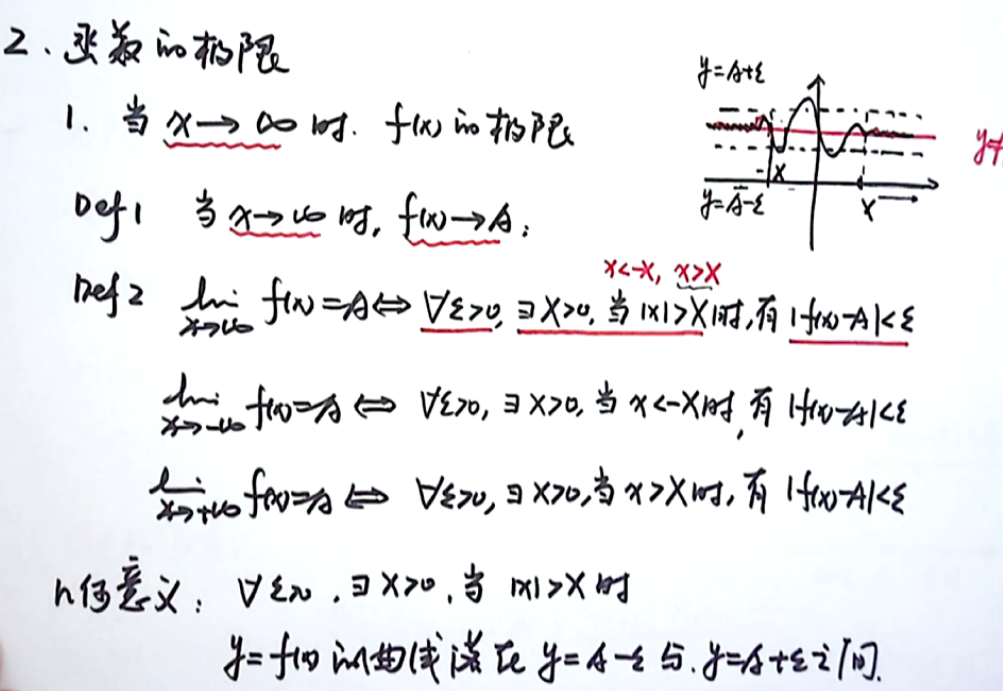 2、函数的极限
1. 当 x→∞ 时. f(x) 的极限
y=A+ε
y=
-X
X
y=A-ε
Def1 当 x→∞ 时, f(x)→A;
x<-X, x>X
Def2 lim x→∞ f(x)=A⇔ ∀ε>0, ∃X>0, 当 |x|>X时,有 |f(x)-A|<ε
lim x→-∞ f(x)=A⇔ ∀ε>0, ∃X>0, 当 x<-X时, 有 |f(x)-A|<ε
lim x→+∞ f(x)=A⇔ ∀ε>0, ∃X>0,当 x>X时, 有 |f(x)-A|<ε
几何意义: ∀ε>0, ∃X>0, 当 |x|>X 时
y=f(x) 的曲线落在 y=A-ε 与 y=A+ε之间.